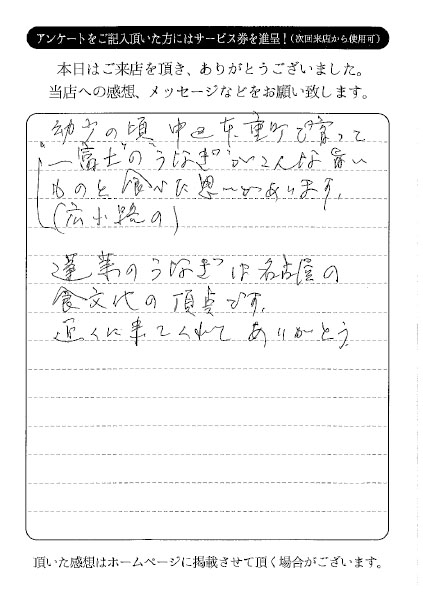 アンケートをご記入頂いた方にはサービス券を進呈！(次回来店から使用可)
本日はご来店を頂き、ありがとうございました。
当店への感想、メッセージなどをお願い致します。
幼少の頃 中区 東重町で育って
一富士のうなぎがこんな旨い
ものと食べた思いがあります。
(広小路の)
蓬莱のうなぎは名古屋の
食文化の頂点です。
近くに来てくれてありがとう
頂いた感想はホームページに掲載させて頂く場合がございます。